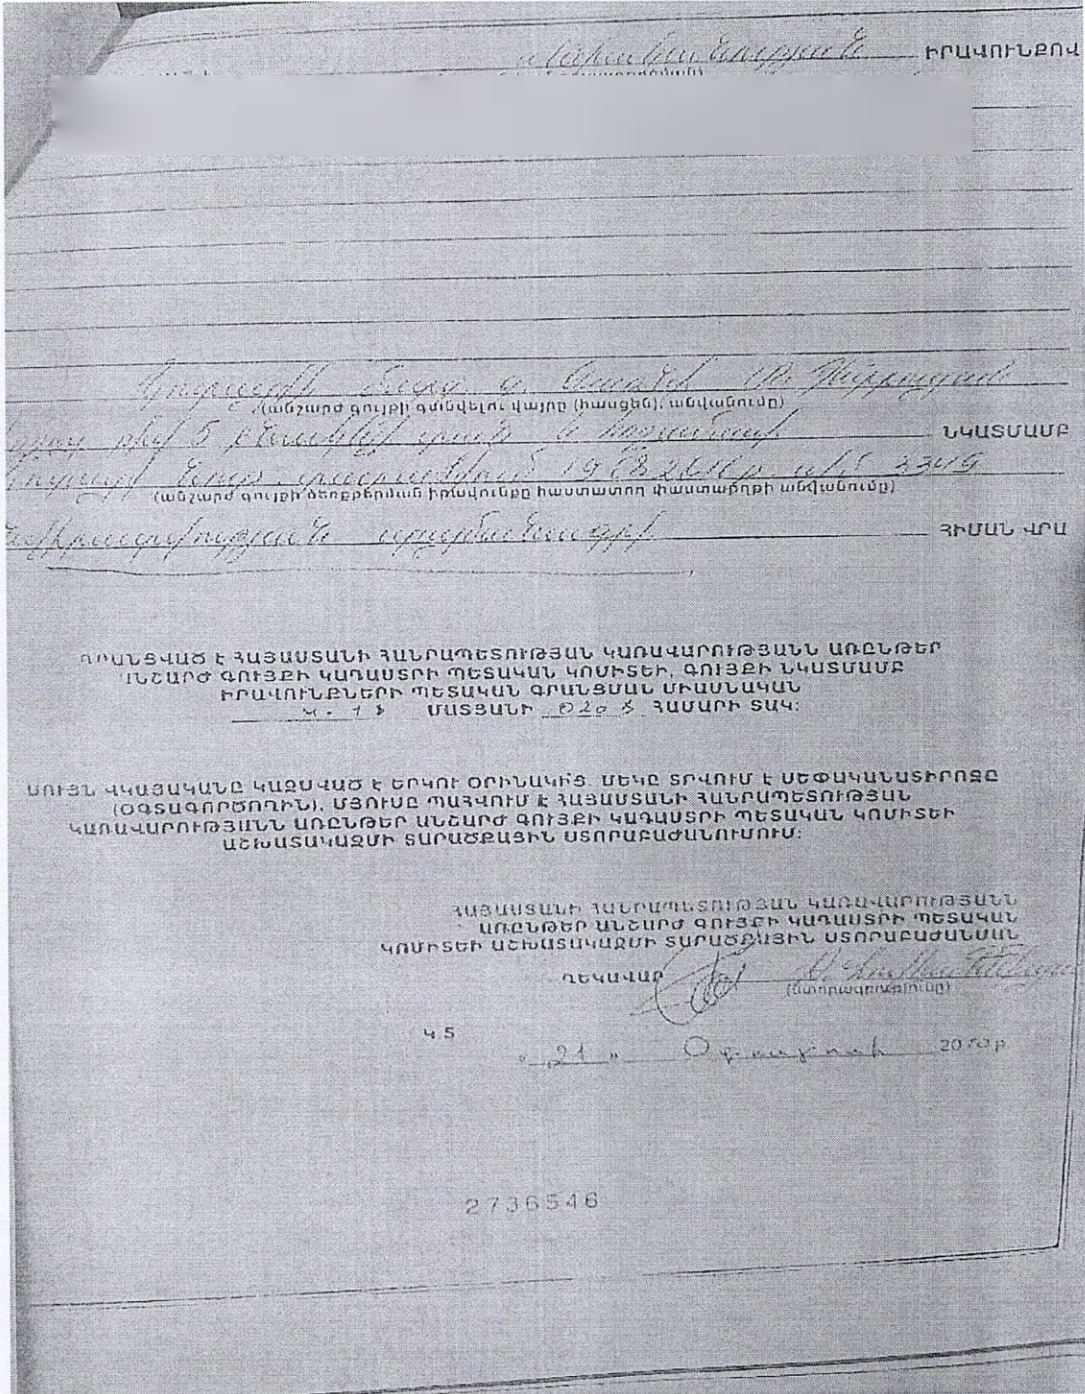 սեփականության ԻՐԱՎՈՒՆՔՈՎ
(անշարժ գույքի գտնվելու վայրը (հասցեն), անվանումը)
թիվ 5 բնակելի տունը և հողամասի ՆԿԱՏՄԱՄԲ
3349
(անշարժ գույքի ձեռքբերման իրավունքը հաստատող փաստաթղթի անվանումը)
պայմանագրի ՀԻՄԱՆ ՎՐԱ
ԳՐԱՆՑՎԱԾ Է ՀԱՅԱՍՏԱՆԻ ՀԱՆՐԱՊԵՏՈՒԹՅԱՆ ԿԱՌԱՎԱՐՈՒԹՅԱՆՆ ԱՌԸՆԹԵՐ
ԱՆՇԱՐԺ ԳՈՒՅՔԻ ԿԱԴԱՍՏՐԻ ՊԵՏԱԿԱՆ ԿՈՄԻՏԵԻ, ԳՈՒՅՔԻ ՆԿԱՏՄԱՄԲ
ԻՐԱՎՈՒՆՔՆԵՐԻ ՊԵՏԱԿԱՆ ԳՐԱՆՑՄԱՆ ՄԻԱՍՆԱԿԱՆ
ՄԱՏՅԱՆԻ ՀԱՄԱՐԻ ՏԱԿ:
ՍՈՒՅՆ ՎԿԱՅԱԿԱՆԸ ԿԱԶՄՎԱԾ Է ԵՐԿՈՒ ՕՐԻՆԱԿԻՑ. ՄԵԿԸ ՏՐՎՈՒՄ Է ՍԵՓԱԿԱՆԱՏԻՐՈՋԸ
(ՕԳՏԱԳՈՐԾՈՂԻՆ), ՄՅՈՒՍԸ ՊԱՀՎՈՒՄ Է ՀԱՅԱՍՏԱՆԻ ՀԱՆՐԱՊԵՏՈՒԹՅԱՆ
ԿԱՌԱՎԱՐՈՒԹՅԱՆՆ ԱՌԸՆԹԵՐ ԱՆՇԱՐԺ ԳՈՒՅՔԻ ԿԱԴԱՍՏՐԻ ՊԵՏԱԿԱՆ ԿՈՄԻՏԵԻ
ԱՇԽԱՏԱԿԱԶՄԻ ՏԱՐԱԾՔԱՅԻՆ ՍՏՈՐԱԲԱԺԱՆՈՒՄՈՒՄ:
ՀԱՅԱՍՏԱՆԻ ՀԱՆՐԱՊԵՏՈՒԹՅԱՆ ԿԱՌԱՎԱՐՈՒԹՅԱՆՆ
ԱՌԸՆԹԵՐ ԱՆՇԱՐԺ ԳՈՒՅՔԻ ԿԱԴԱՍՏՐԻ ՊԵՏԱԿԱՆ
ԿՈՄԻՏԵԻ ԱՇԽԱՏԱԿԱԶՄԻ ՏԱՐԱԾՔԱՅԻՆ ՍՏՈՐԱԲԱԺԱՆՄԱՆ
ՂԵԿԱՎԱՐ
(ստորագրությունը)
Կ.Տ
« 21 » Օգոստոսի
2736546